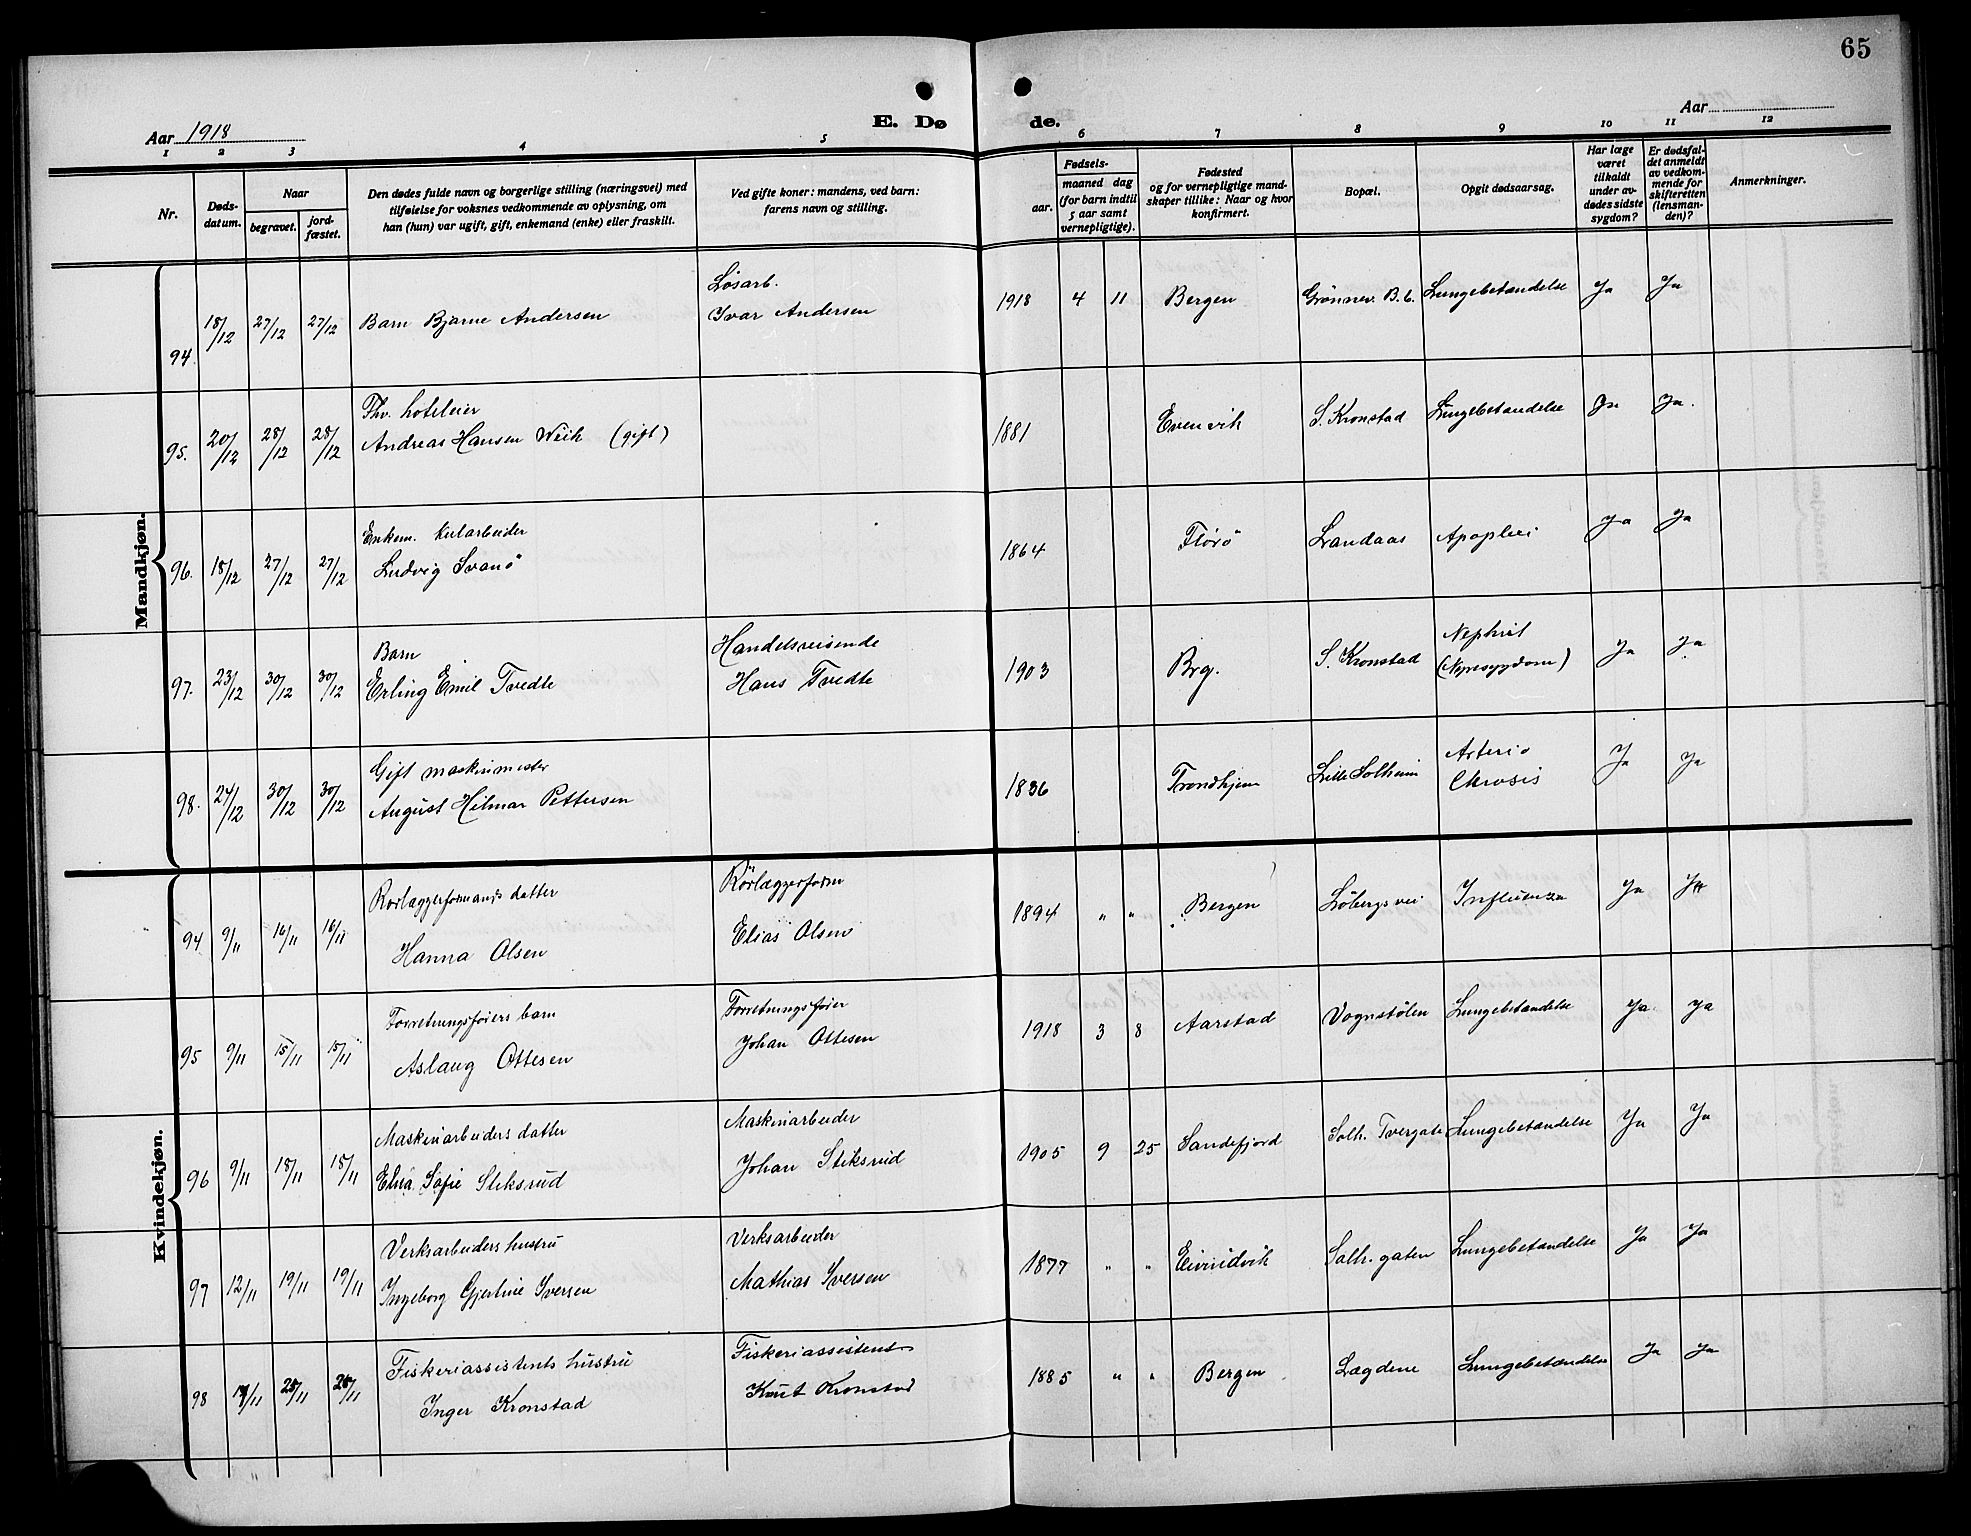 65
Aar 1918
E. Dø
de.
Aar
1 2 3 4 5 6 7 8 9 10 11 12
Nr.
Døds-
datum.
Naar
begravet.
jord-
fæstet.
Den dødes fulde navn og borgerlige stilling (næringsvei) med
tilføielse for voksnes vedkommende av oplysning, om
han (hun) var ugift, gift, enkemand (enke) eller fraskilt.
Ved gifte koner: mandens, ved barn:
farens navn og stilling.
Fødsels-
aar.
maaned dag
(for barn indtil
5 aar samt
vernepligtige).
Fødested
og for vernepligtige mand-
skaper tillike: Naar og hvor
konfirmert.
Bopæl.
Opgit dødsaarsag.
Har læge
været
tilkaldt
under av-
dødes sidste
sygdom?
Er dødsfal-
det anmeldt
av vedkom-
mende for
skifteretten
(lensman-
den)?
Anmerkninger.
Mandkjøn.
Løsarb.
94. 18/12 27/12 27/12 Barn Bjarne Andersen Ivar Andersen 1918 4 11 Bergen Grønnev. B. 6. Lungebetændelse Ja Ja
Fhv. hoteleier
95. 20/12 28/12 28/12 Andreas Hansen Weik (gift) 1881 Evenvik S. Kronstad Lungebetændelse Ja Ja.
Enkem. Kularbeider
96. 18/12 27/12 27/12 Ludvig Svanö 1864 Florö Landaas Apoplexi Ja Ja
Barn Handelsreisende Nephrit
97. 23/12 30/12 30/12 Erling Emil Tvedte Hans Tvedte 1903 Brg. S. Kronstad (Nyresygdom) Ja Ja
Gift maskinmester Arterio
98. 24/12 30/12 30/12 August Hilmar Pettersen 1836 Trondhjem Lille Solheim Clerosis Ja Ja
Kvindekjøn.
Rørlæggerformands datter Rörlæggerform
94 9/11 16/11 16/11 Hanna Olsen Elias Olsen 1894 " " Bergen Løbergsvei Influenza Ja Ja
Forretningsføiers barn Forretningsføier
95 9/11 15/11 15/11 Aslaug Ottesen Johan Ottesen 1918 3 8 Aarstad Vognstølen Lungebetændelse Ja. Ja
Maskinarbeiders datter Maskinarbeider
96 9/11 18/11 18/11 Elna Sofie Sliksrud Johan Sliksrud 1905 9 25 Sandefjord Solh. Tvergate Lungebetændelse Ja Ja
Verksarbeiders hustru Verksarbeider
97 12/11 19/11 19/11 Ingeborg Gjertine Iversen Mathias Iversen 1877 " " Eivindvik Solh. gaten Lungebetændelse Ja Ja
Fiskeriassistents hustru Fiskeriassistent
98 /11 /11 /11 Inger Kronstad Knut Kronstad 1885 " " Bergen Lægdene Lungebetændelse Ja Ja